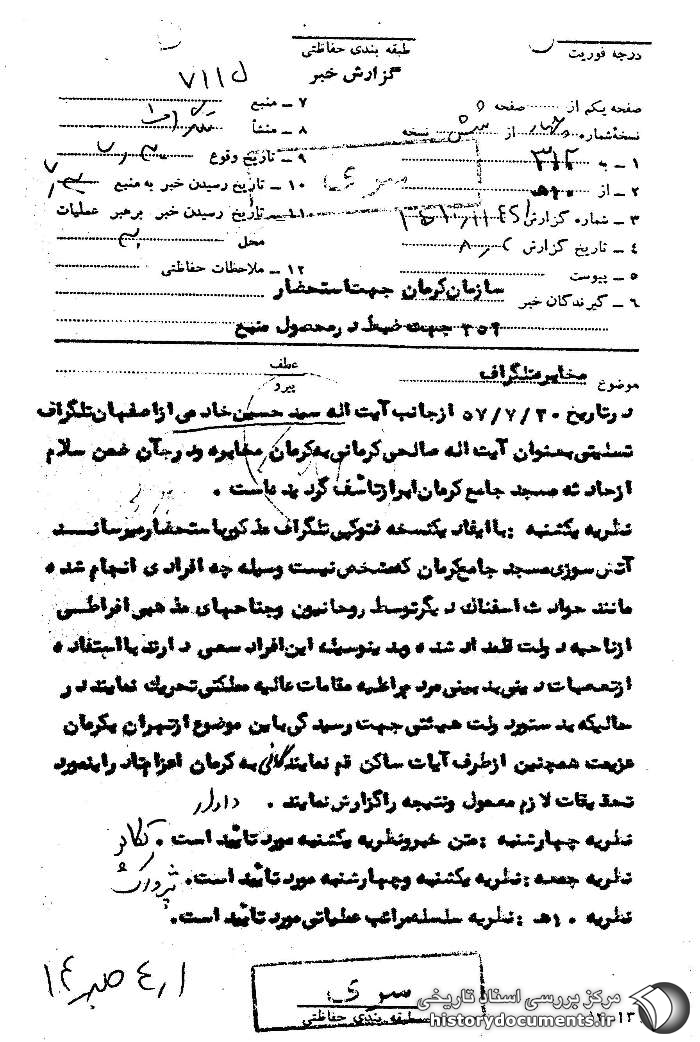 درجه فوریت
طبقه بندی حفاظتی
گزارش خبر
صفحه یکم از صفحه
نسخه شماره از شش نسخه
۱ ـ به ۳۱۲
۲ ـ از ۱۰هـ
۳ ـ شماره گزارش
۴ ـ تاریخ گزارش
۵ ـ پیوست
۶ ـ گیرندگان خبر
۷ ـ منبع
۸ ـ منشأ
۹ ـ تاریخ وقوع
۱۰ ـ تاریخ رسیدن خبر به منبع
۱۱ ـ تاریخ رسیدن خبر برهبر عملیات
محل
۱۲ ـ ملاحظات حفاظتی
سری
سازمان کرمان جهت استحضار
۳۵۲ جهت ضبط در محصول منبع
موضوع مخابره تلگراف
عطف
پیرو
در تاریخ ۵۷/۷/۳۰ از جانب آیت اله سید حسین خادمی از اصفهان تلگراف
تسلیتی بعنوان آیت اله صالحی کرمانی به کرمان مخابره و در آن ضمن سلام
از حادثه مسجد جامع کرمان ابراز تاسف گردیده است .
نظریه یکشنبه : با ایفاد یکنسخه فتوکپی تلگراف مذکور باستحضار میرساند
آتش سوزی مسجد جامع کرمان که مشخص نیست وسیله چه افرادی انجام شده
مانند حوادث اسفناک دیگر توسط روحانیون و جناحهای مذهبی افراطی
از ناحیه دولت قلمداد شده و بدینوسیله این افراد سعی دارند با استفاده
از تعصبات دینی بدبینی مردم را علیه مقامات عالیه مملکتی تحریک نمایند در
حالیکه بدستور دولت هیئتی جهت رسیدگی باین موضوع از تهران بکرمان
عزیمت همچنین از طرف آیات ساکن قم نمایندگانی به کرمان اعزام تا در اینمورد
تحقیقات لازم معمول و نتیجه را گزارش نمایند .
نظریه چهارشنبه : متن خبر و نظریه یکشنبه مورد تائید است .
نظریه جمعه : نظریه یکشنبه و چهارشنبه مورد تائید است.
نظریه ۱۰هـ : نظریه سلسله مراتب عملیاتی مورد تائید است.
سری
طبقه بندی حفاظتی
مرکز بررسی اسناد تاریخی
historydocuments.ir